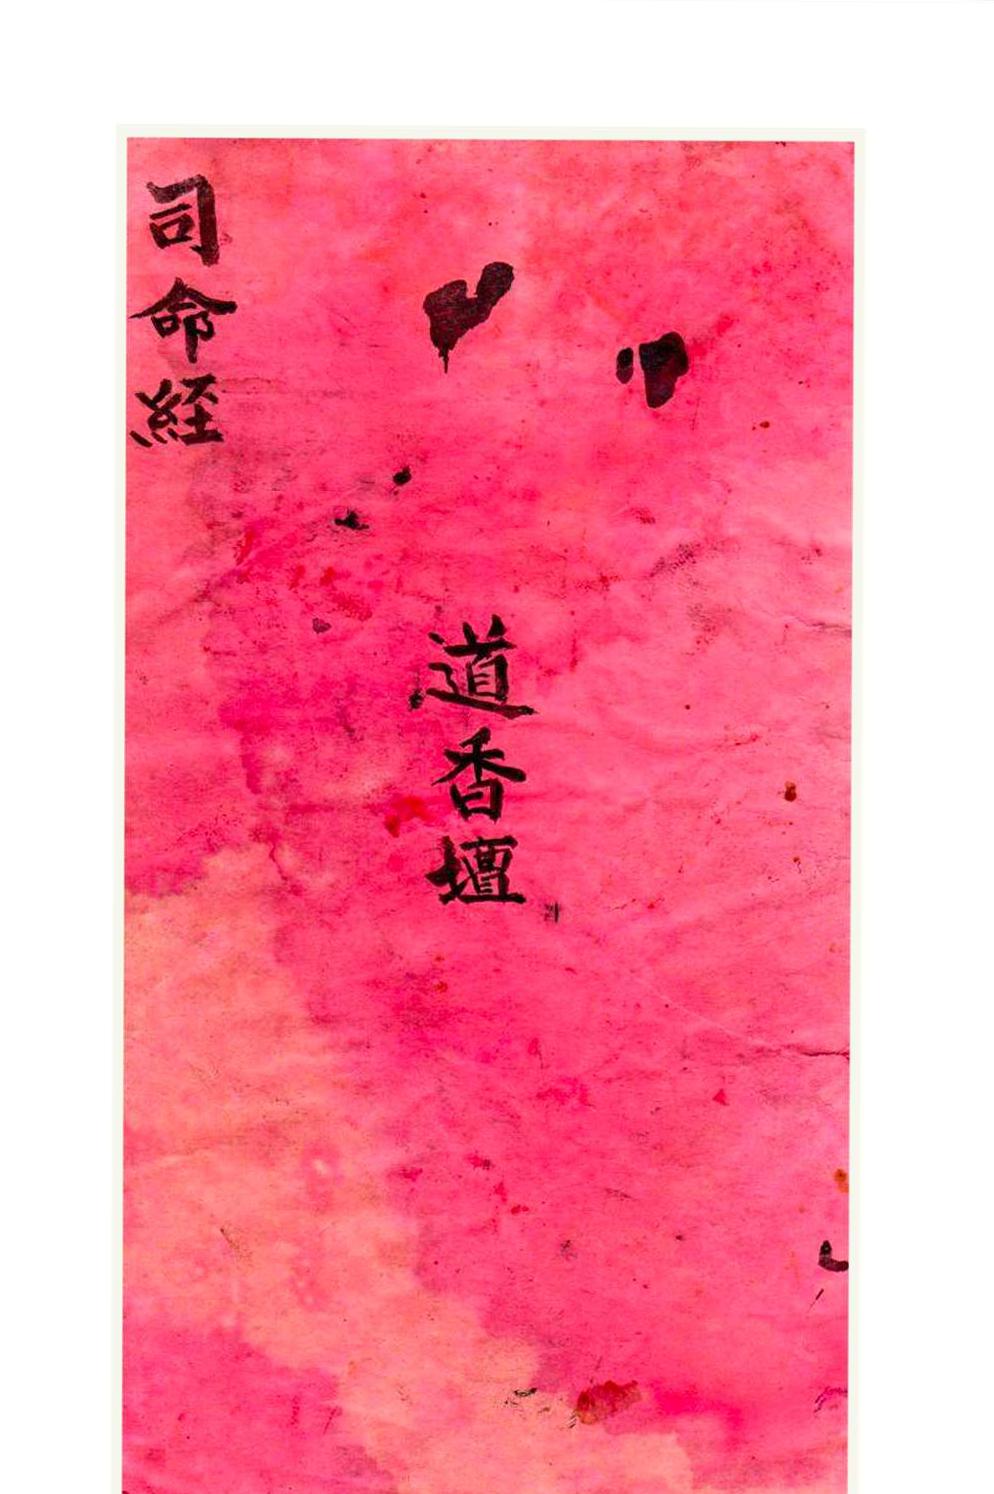 司命経
道香壇